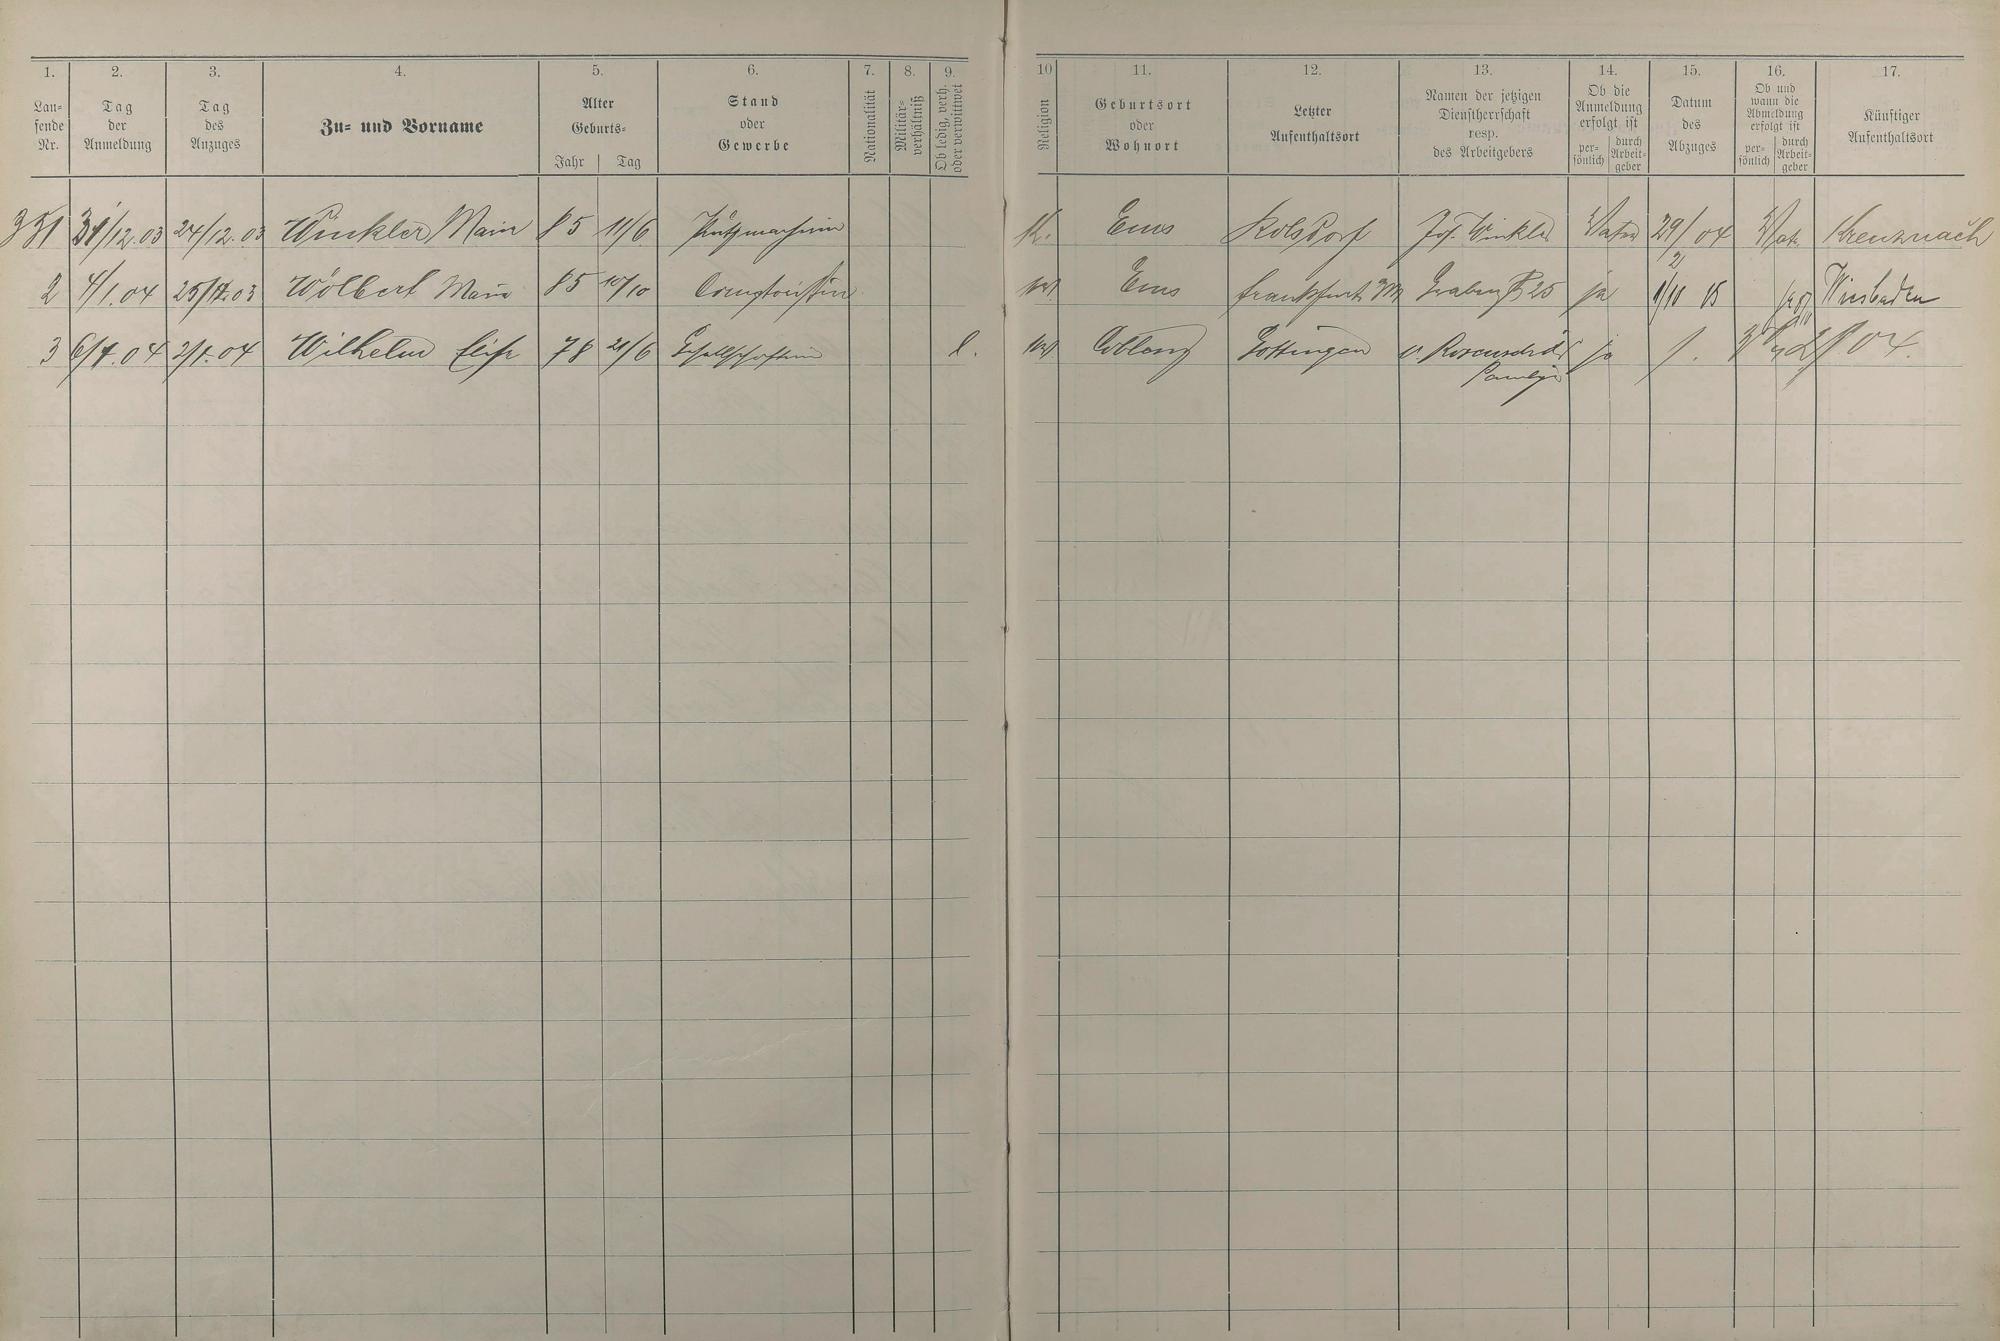 1. 2. 3. 4. 5. 6. 7. 8. 9. 10 11. 12. 13. 14. 15. 16. 17.
Lau-
fende
Nr.
Tag
der
Anmeldung
Tag
des
Anzuges
Zu- und Vorname
Alter
Geburts-
Jahr Tag
Stand
oder
Gewerbe
Nationalität
Militär-
verhältniß
Ob ledig, verh.
oder verwittwet
Religion
Geburtsort
oder
Wohnort
Letzter
Aufenthaltsort
Namen der jetzigen
Dienstherrschaft
resp.
des Arbeitgebers
Ob die
Anmeldung
erfolgt ist
per-
sönlich
durch
Arbeit-
geber
Datum
des
Abzuges
Ob und
wann die
Abmeldung
erfolgt ist
per-
sönlich
durch
Arbeit-
geber
Künftiger
Aufenthaltsort
351 31/12.03 24/12.03 Winkler Marie 85 11/6 Putzmacherin K. Ems Kolsdorf Jos. Winkler Vater 29/2 04 Vat. Kreuznach
2 4/1.04 25/12.03 Wölbert Marie 85 10/10 Comptoristin ev. Ems Frankfurt a/M Grabenstr 25 ja 1/10 05 Wiesbaden
3 6/1.04 2/1.04 Wilhelm Elise 78 21/6 Gesellschafterin l. ev. Coblenz Göttingen v. ja 04.